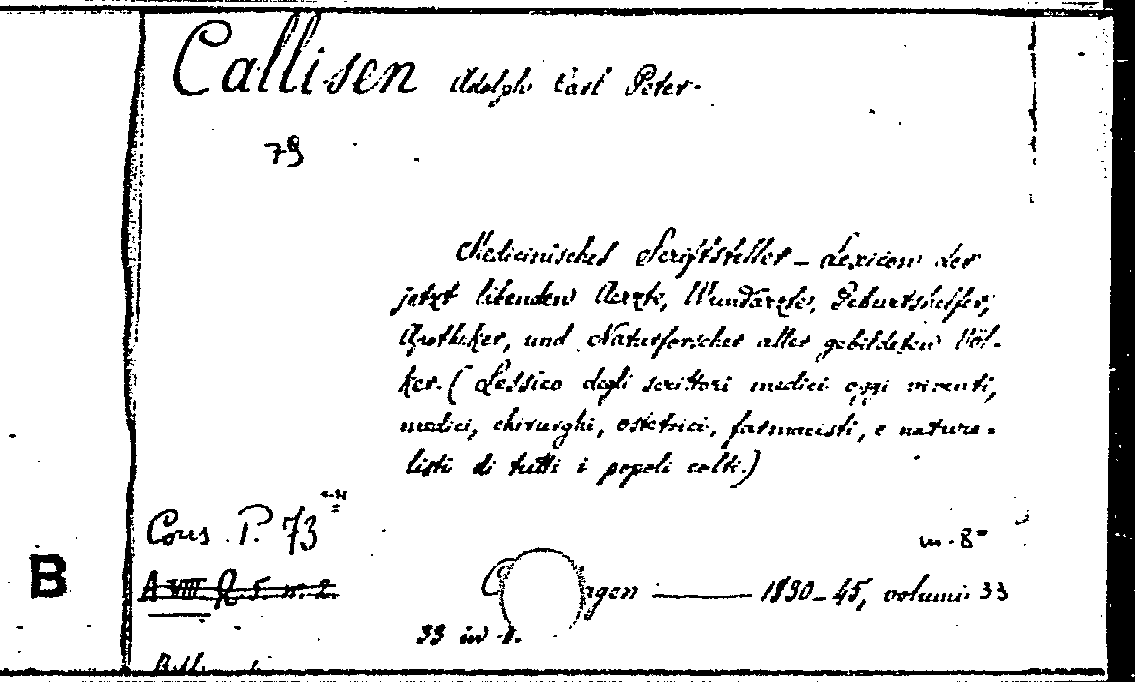 Callisen Adolph Carl Peter.
79
Medicinisches Scriftsteller - Lexicon der
jetzt libenden Aerzte, Wundärzte, Geburtshelfer,
Apotheker, und Naturforscher aller gebildeten Völ-
ker. (Lessico degli scrittori medici oggi viventi,
medici, chirurghi, ostetrici, farmacisti, e natura-
listi di tutti i popoli colti.)
Cons P. 73
in-8°
B
A VIII R 5. n. 2.
C gen — 1830-45, volumi 33
33 in